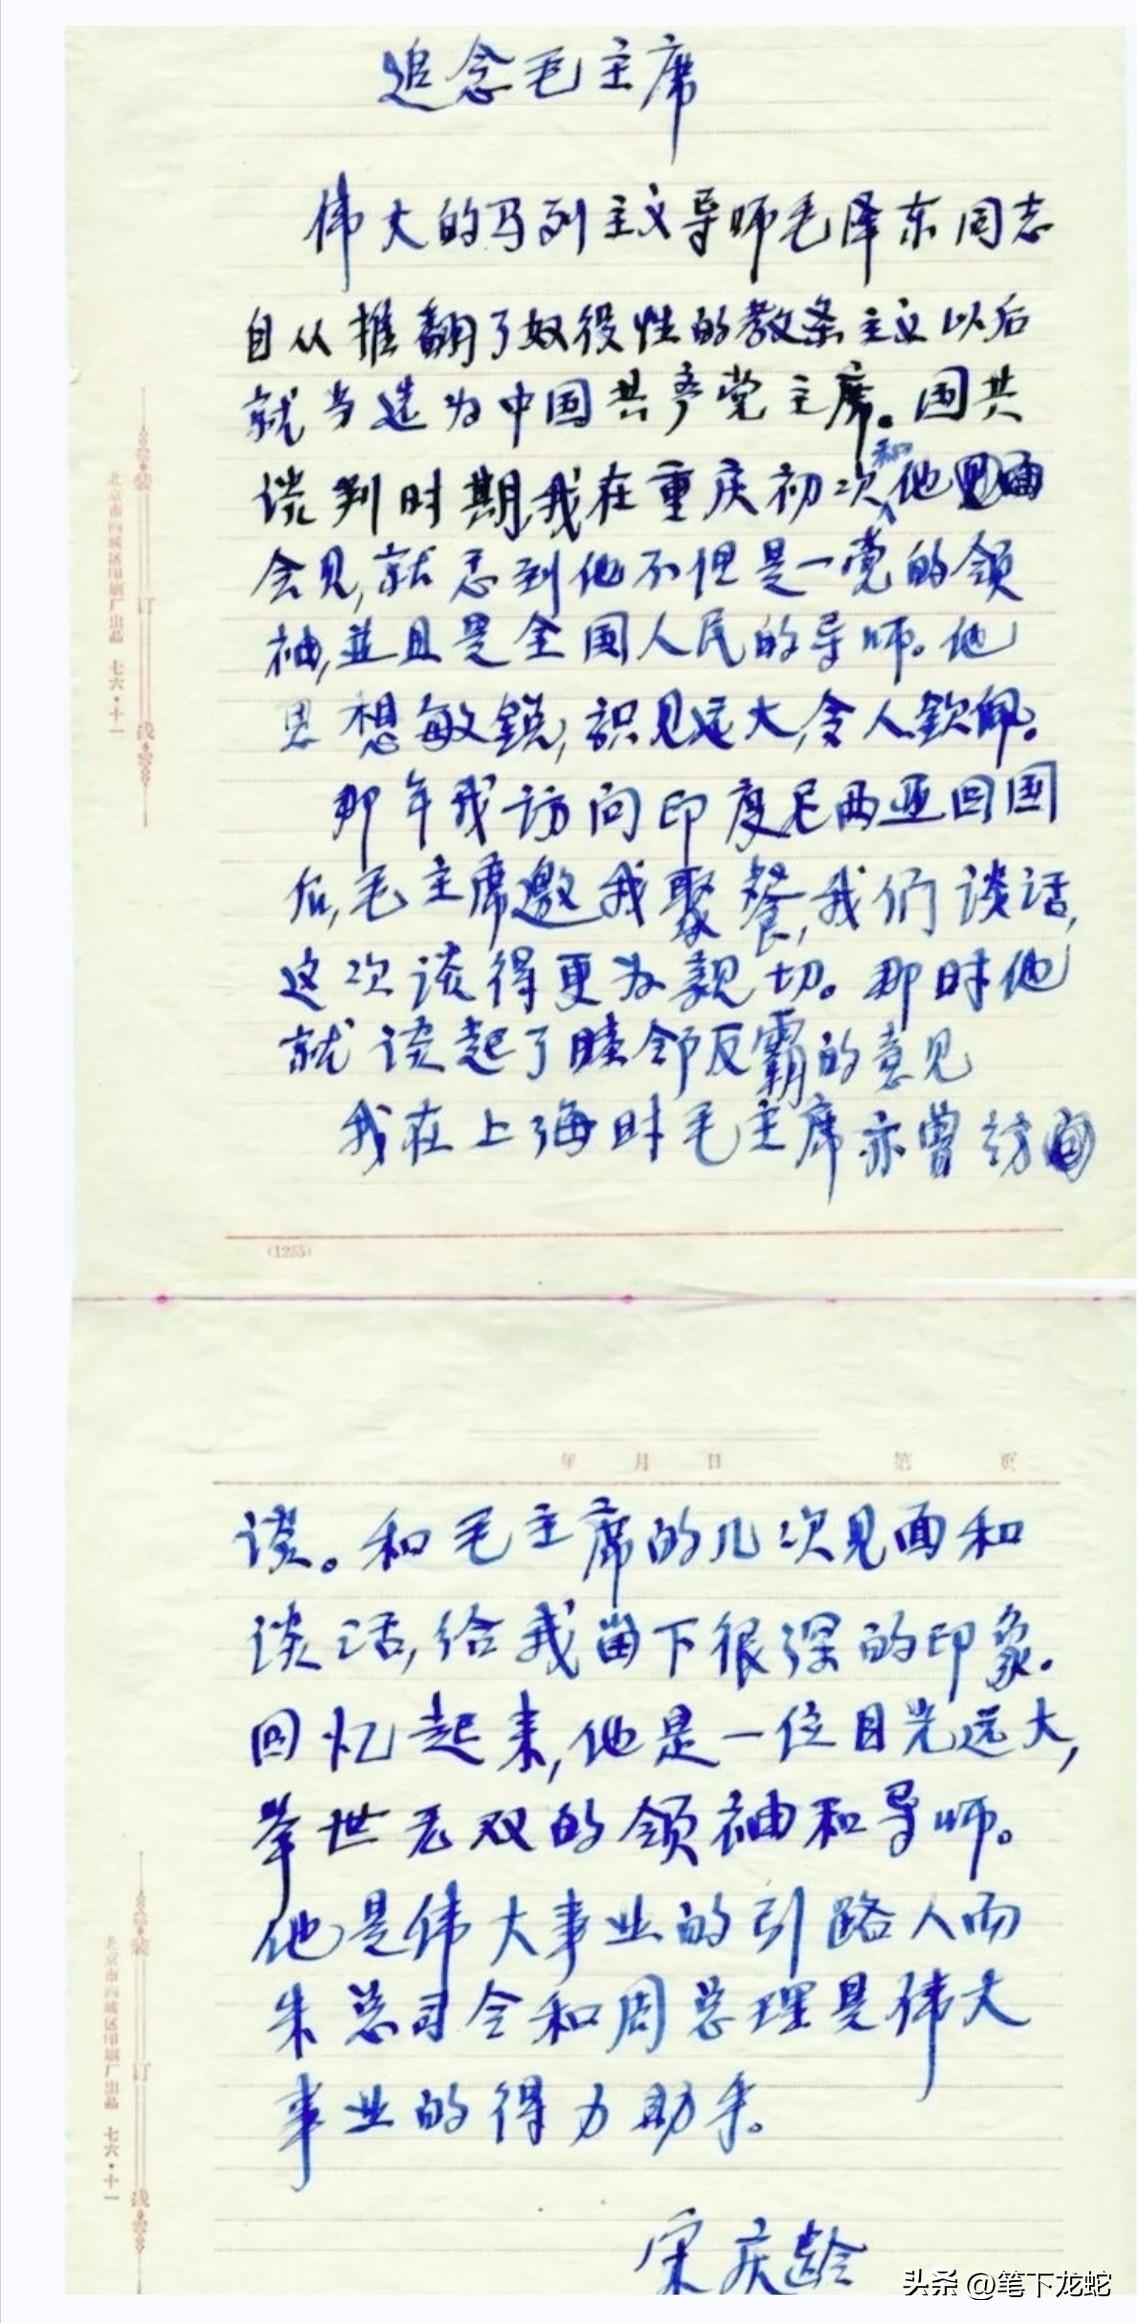 追念毛主席
伟大的马列主义导师毛泽东同志
自从推翻了奴役性的教条主义以后
就当选为中国共产党主席。国共
谈判时期,我在重庆初次和他
会见,就感到他不但是一党的领
袖,並且是全国人民的导师。他
思想敏锐,识见远大,令人钦佩。
那年我访问印度尼西亚回国
后,毛主席邀我聚餐,我们谈话,
这次谈得更为亲切。那时他
就谈起了睦邻反霸的意见
我在上海时毛主席亦曾访
(1255)
北京市西城区印刷厂出品 七六·十一
装
订
线
年 月 日 第 页
谈。和毛主席的几次见面和
谈话,给我留下很深的印象。
回忆起来,他是一位目光远大,
举世无双的领袖和导师。
他是伟大事业的引路人而
朱总司令和周总理是伟大
事业的得力助手。
宋庆龄
北京市西城区印刷厂出品 七六·十一
装
订
线
头条 @笔下龙蛇